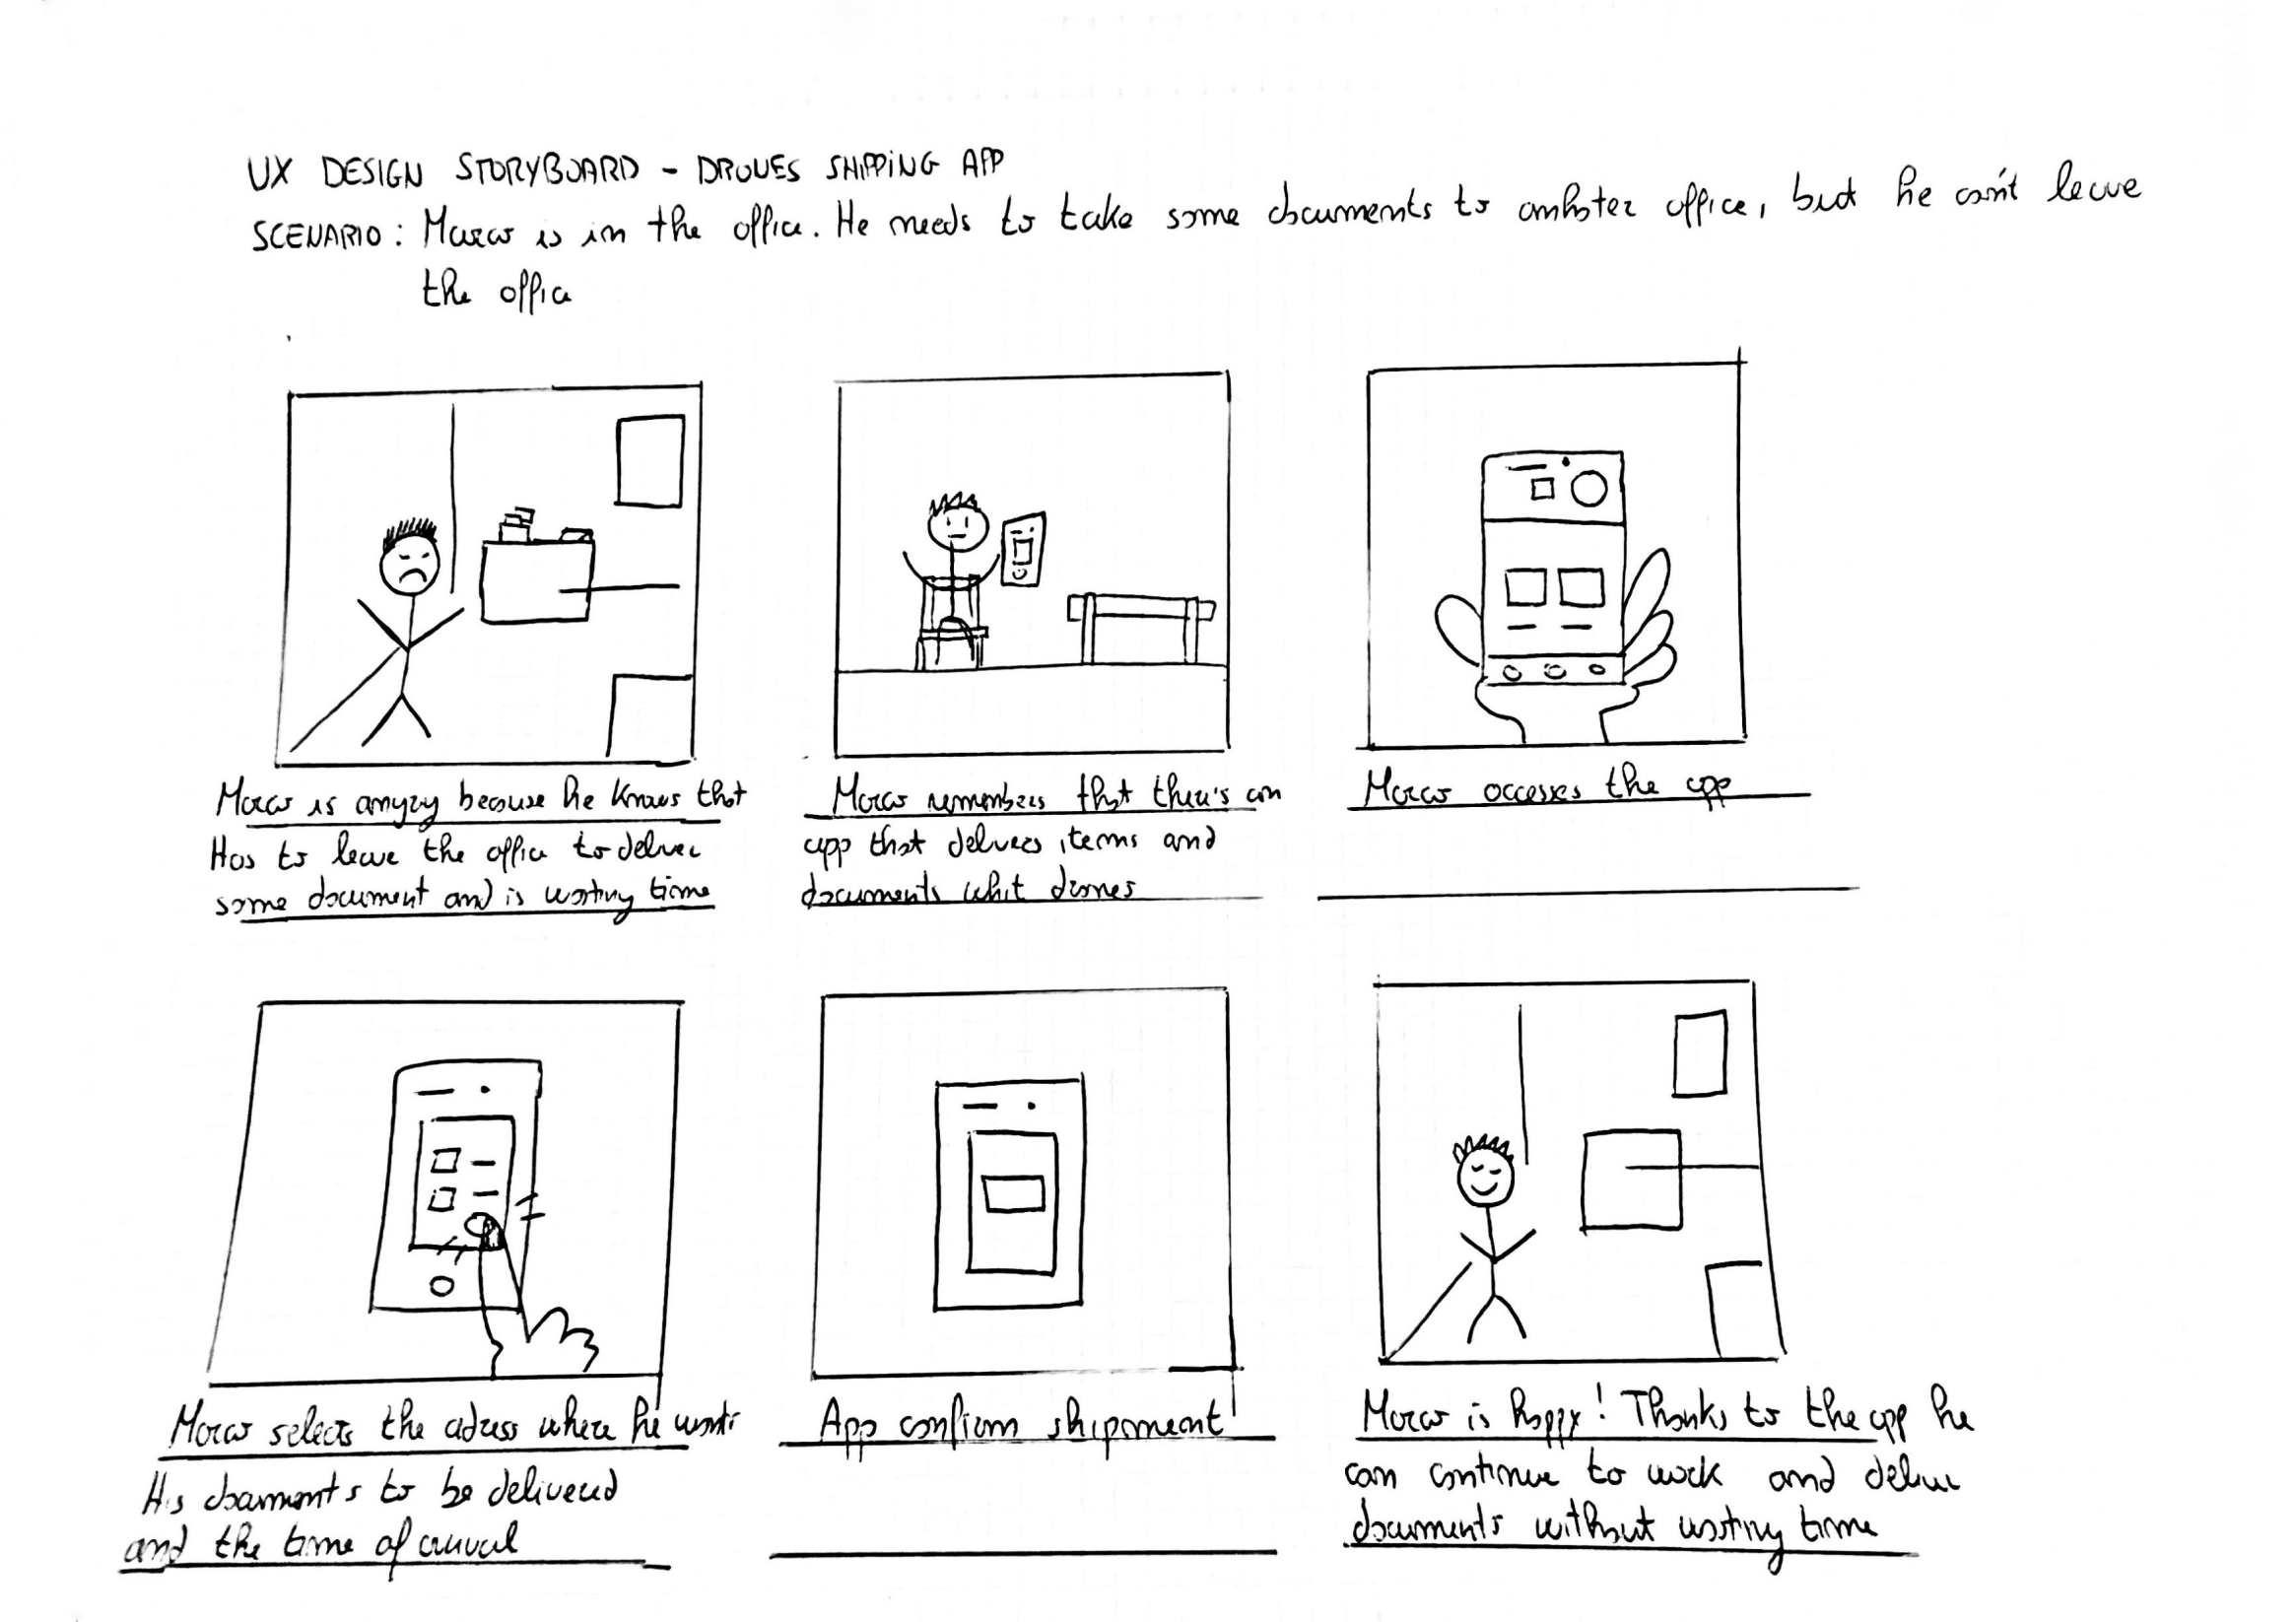 UX DESIGN STORYBOARD - DRONES SHIPPING APP
SCENARIO: Marco is in the office. He needs to take some documents to another office, but he can't leave
the office
Marco is angry because he knows that
Has to leave the office to deliver
some document and is wasting time
Marco remembers that there's an
app that delivers items and
documents whit drones
Marco accesses the app
Marco selects the adress where he wants
His documents to be delivered
and the time of arrival
App confirm shipment
Marco is happy! Thanks to the app he
can continue to work and deliver
documents without wasting time